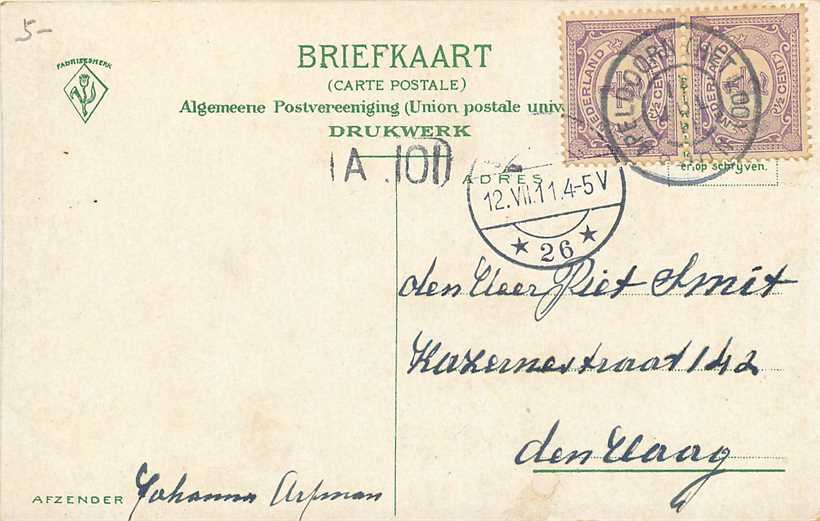 5-
FABRIEKSMERK
BRIEFKAART
(CARTE POSTALE)
Algemeene Postvereeniging (Union postale univ
DRUKWERK
NEDERLAND
½ CENT
NEDERLAND
½ CENT
APELDOORN (HET LOO)
A .10
ADRES
er op schrijven.
12.VII.11.4-5V
26
den Heer Piet Smit
Kazernestraat 142
den Haag
AFZENDER Johanna